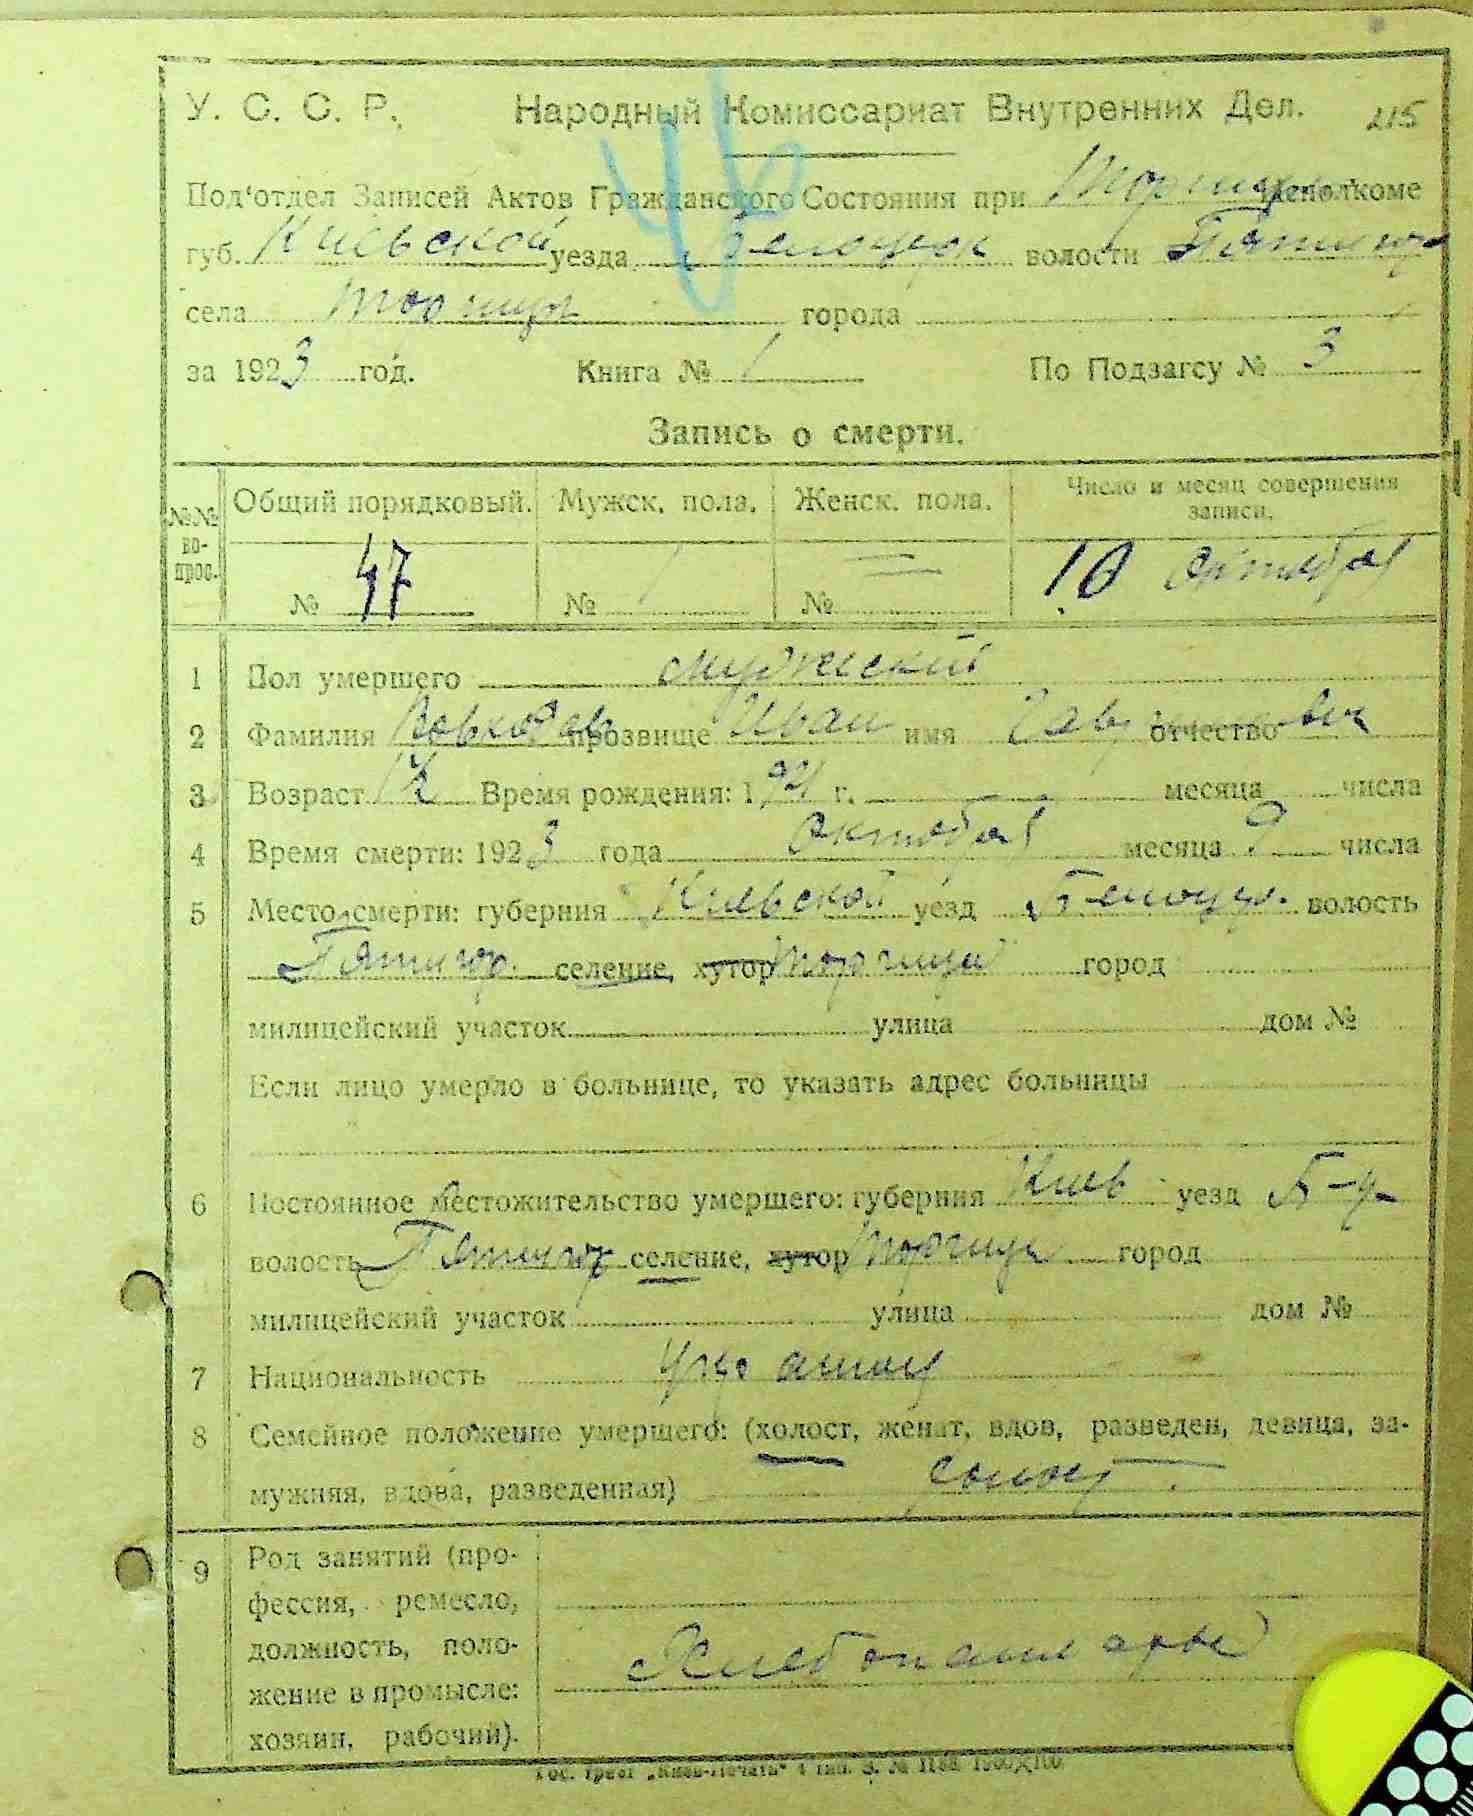 У. С. С. Р. Народный Комиссариат Внутренних Дел. 215
46
Под'отдел Записей Актов Гражданского Состояния при исполкоме
губ. Киевской уезда Белоцерк волости Пятигор
села Торчица города
за 1923 год. Книга № 1 По Подзагсу № 3
Запись о смерти.
№№ вопрос. Общий порядковый. Мужск. пола. Женск. пола. Число и месяц совершения записи.
№ 47 № № = 10 Октября
1 Пол умершего мужеский
2 Фамилия прозвище Иван имя отчество
3 Возраст Время рождения: 1921 г. месяца числа
4 Время смерти: 1923 года октября месяца 9 числа
5 Место смерти: губерния Киевской уезд Белоцер. волость
Пятигор. селение, хутор Торчица город
милицейский участок улица дом №
Если лицо умерло в больнице, то указать адрес больницы
6 Постоянное местожительство умершего: губерния Киев уезд Б-ц
волость Пятигор селение, хутор Торчица город
милицейский участок улица дом №
7 Национальность
8 Семейное положение умершего: (холост, женат, вдов, разведен, девица, за-
мужняя, вдова, разведенная) холост
9 Род занятий (про-
фессия, ремесло,
должность, поло-
жение в промысле:
хозяин, рабочий).
Хлебопашество
Гос. трест „Киев-Печать“